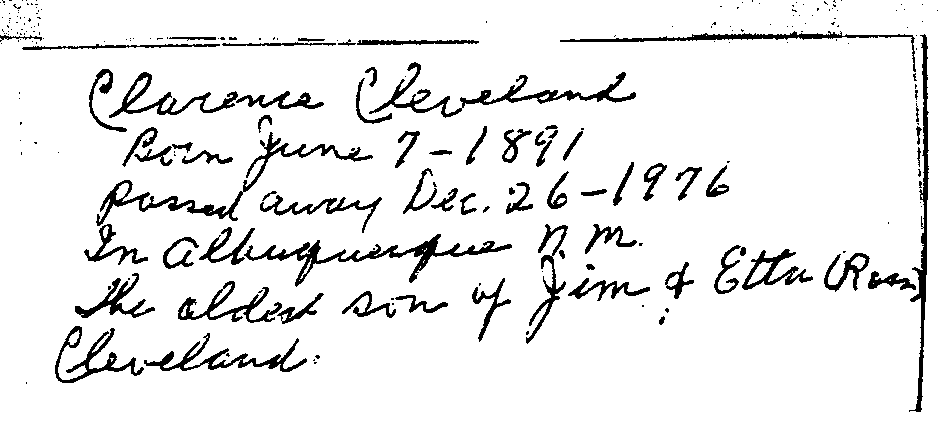 Clarence Cleveland
Born June 7-1891
Passed away Dec. 26-1976
In Albuquerque N.M.
The oldest son of Jim & Etta (Ross)
Cleveland.